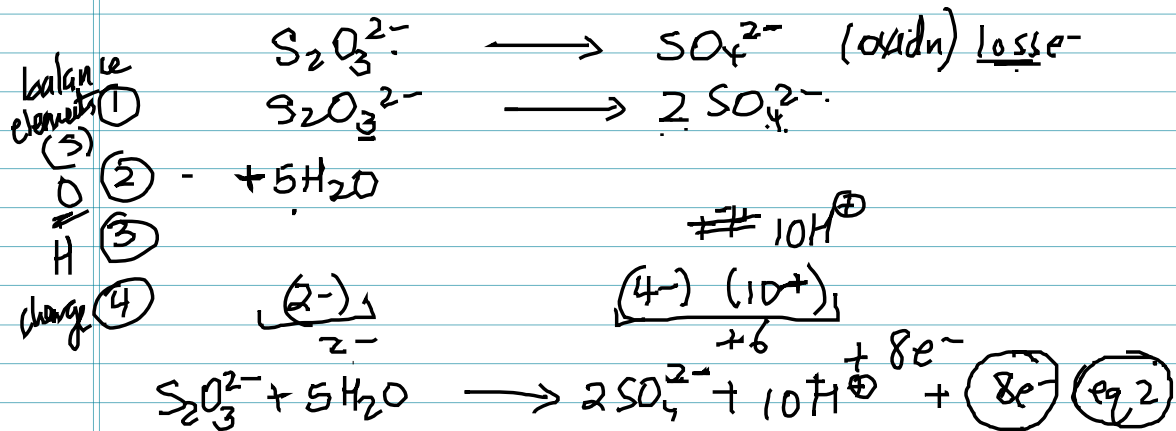 S₂O₃²⁻ ⟶ SO₄²⁻ (oxidn) loss e⁻
balance elements (S) ① S₂O₃²⁻ ⟶ 2 SO₄²⁻
O ② - + 5H₂O
H ③ 10H⁺
charge ④ (2-) (4-) (10+)
2- +6
+ 8e⁻
S₂O₃²⁻ + 5H₂O ⟶ 2SO₄²⁻ + 10H⁺ + 8e⁻ eq 2